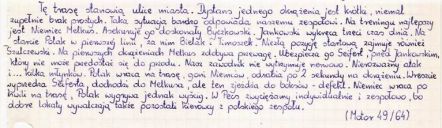 Tę trasę stanowią ulice miasta. Dystans jednego okrążenia jest krótki, niemal
zupełnie brak prostych. Taka sytuacja bardzo odpowiada naszemu zespołowi. Na treningu najlepszy
jest Niemiec Melkus. Asekuruje go doskonały Byczkowski. Jankowski wykręca trzeci czas dnia. Na
starcie Polak w pierwszej linii, za nim Bielak i Timoszek. Niezłą pozycję startową zajmuje również
Szulczewski. Na pierwszych okrążeniach Melkus zdobywa przewagę. Ubezpiecza go Seifert, przed Jankowskim,
który nie może przedostać się do przodu. Nasz zawodnik nie wytrzymuje nerwowo. Nierozważny atak
i... kółka młynków. Polak wraca na trasę, goni Niemców, odrabia po 2 sekundy na okrążeniu. Wreszcie
wyprzedza Seiferta, dochodzi do Melkusa, ale ten zjeżdża do boksów - defekt. Niemiec wraca po
chwili na trasę, Polak wygrywa jednak wyścig. W Pezo zwyciężamy indywidualnie i zespołowo, bo
dobre lokaty wywalczają także pozostali kierowcy z polskiego zespołu.
(Motor 49/64)